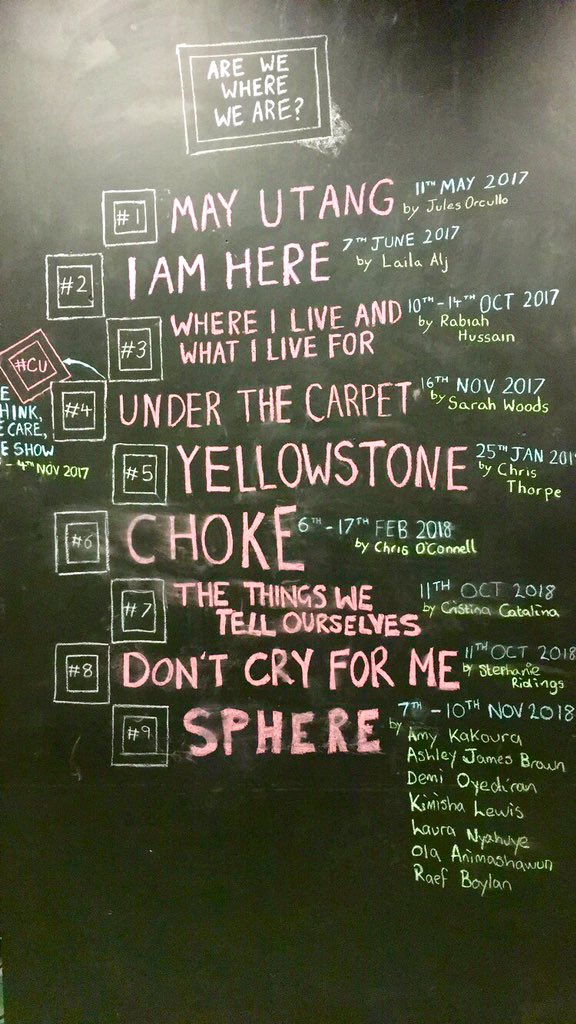 ARE WE
WHERE
WE ARE?
#1 MAY UTANG 11TH MAY 2017
by Jules Orcullo
#2 I AM HERE 7TH JUNE 2017
by Laila Alj
#3 WHERE I LIVE AND 10TH-14TH OCT 2017
WHAT I LIVE FOR by Rabiah
Hussain
#CU
HINK,
CARE,
SHOW
- 4TH NOV 2017
#4 UNDER THE CARPET 16TH NOV 2017
by Sarah Woods
#5 YELLOWSTONE 25TH JAN 201
by Chris
Thorpe
#6 CHOKE 6TH-17TH FEB 2018
by Chris O'Connell
#7 THE THINGS WE 11TH OCT 2018
TELL OURSELVES by Cristina Catalina
#8 DON'T CRY FOR ME 11TH OCT 2018
by Stephanie
Ridings
#9 SPHERE 7TH-10TH NOV 2018
by Amy Kakoura
Ashley James Brown
Demi Oyediran
Kimisha Lewis
Laura Nyahuye
Ola Animashawun
Raef Boylan